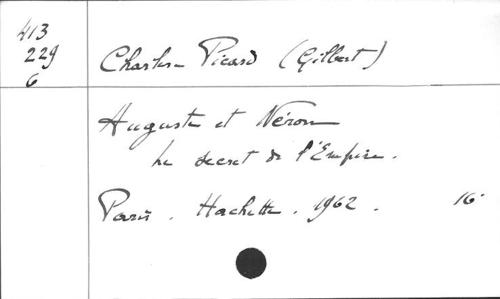 413
229
6
Charles-Picard (Gilbert)
Auguste et Néron
Le secret de l'Empire.
Paris. Hachette. 1962. 16°